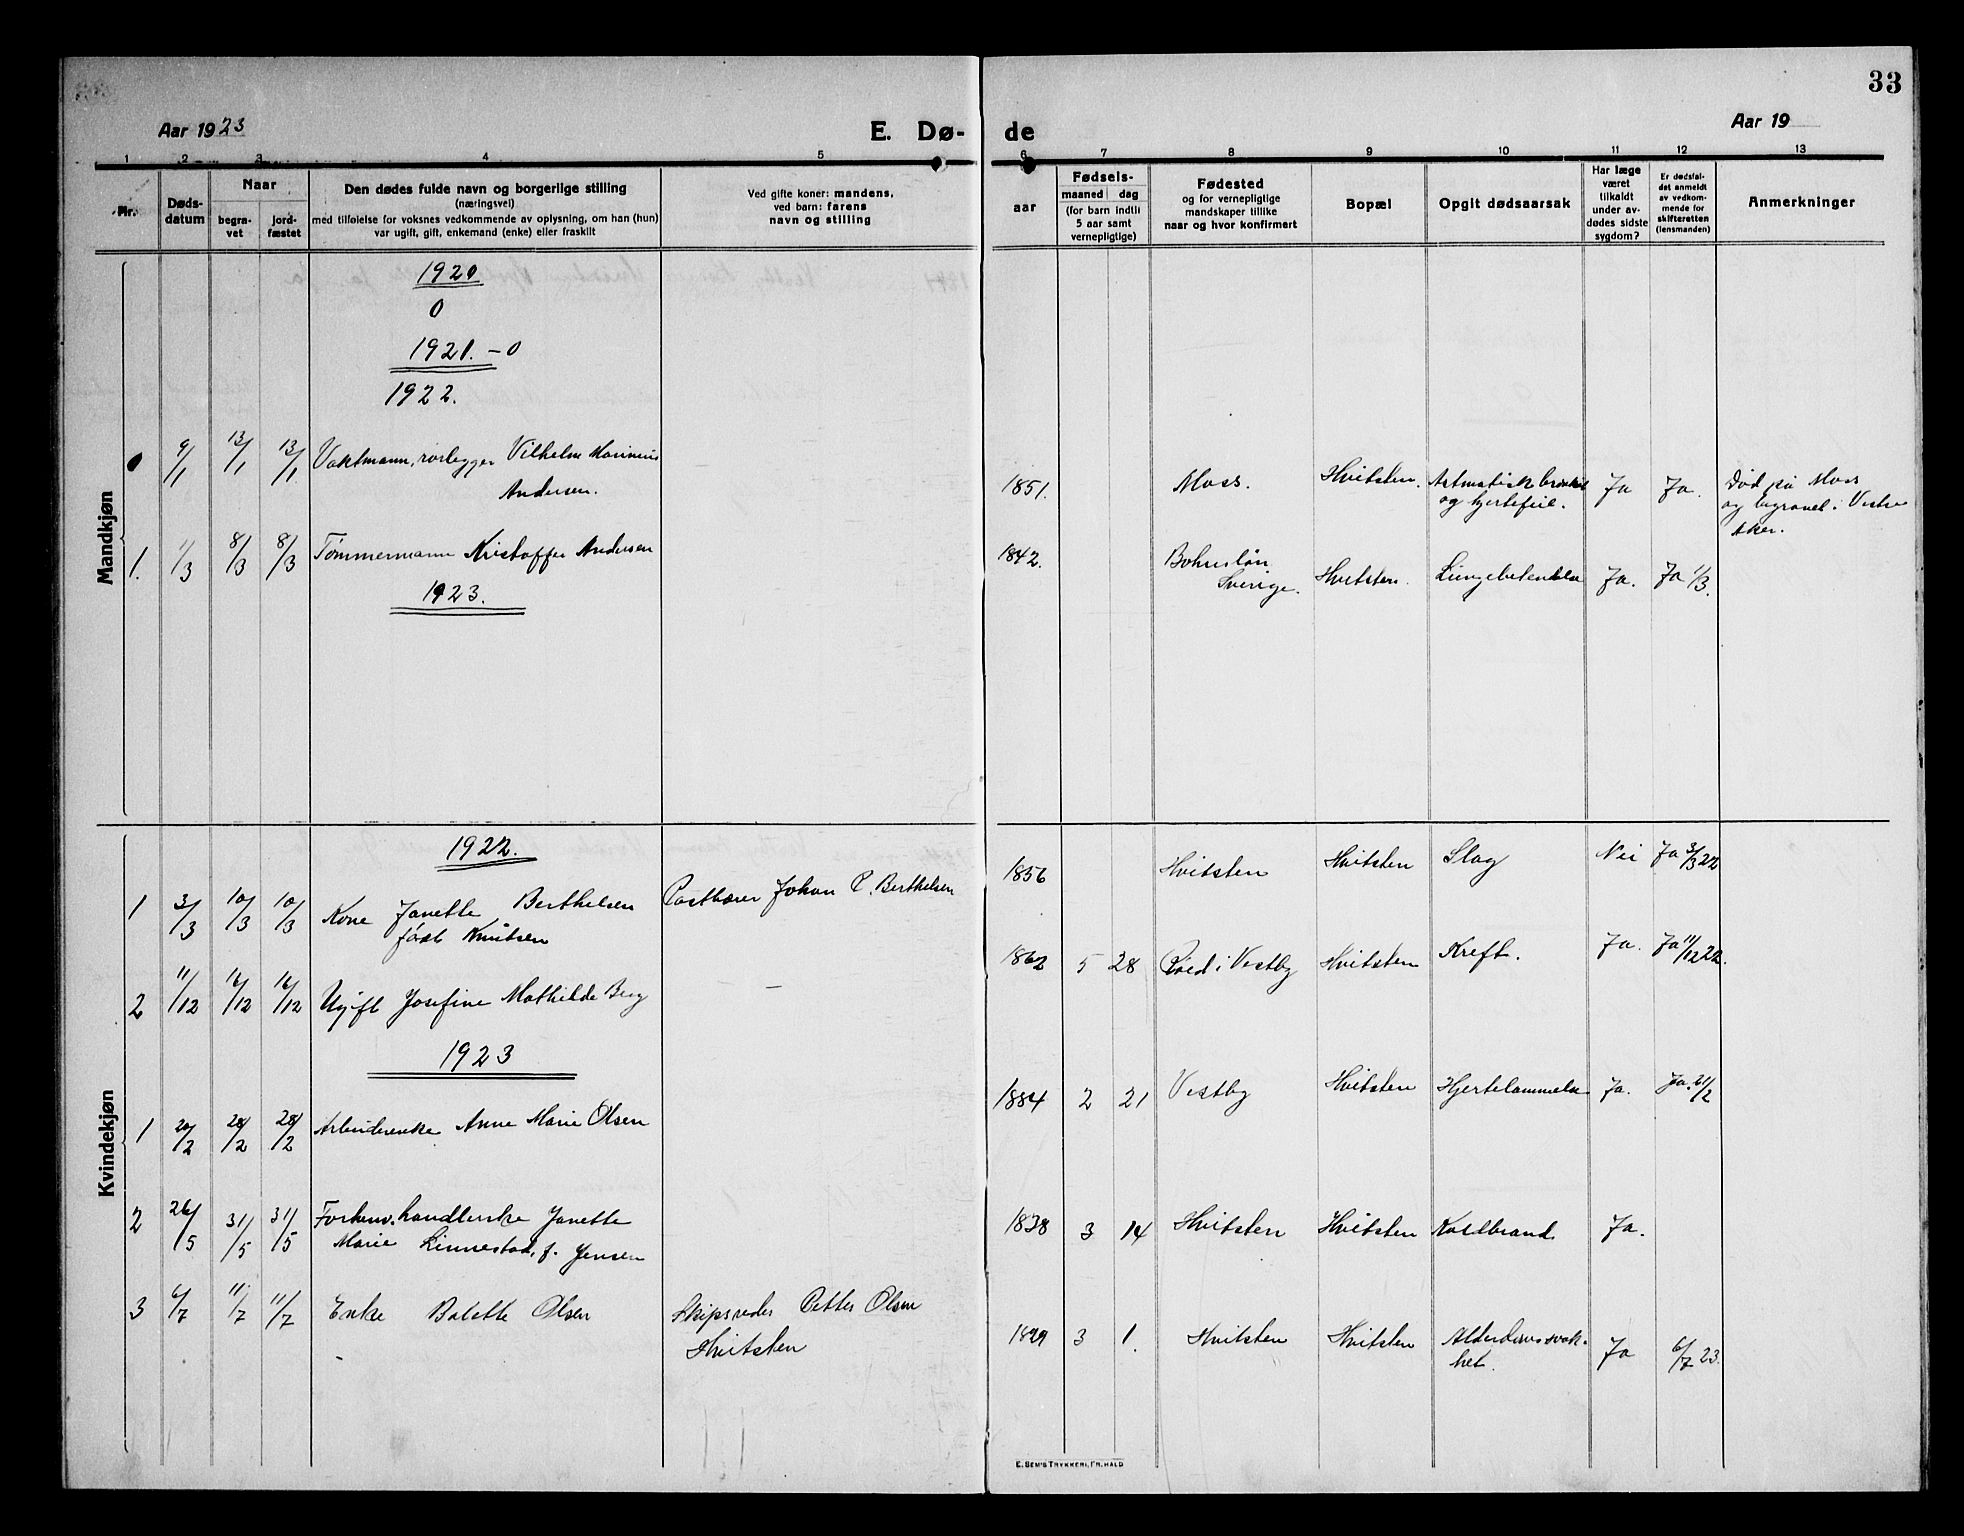 33
Aar 1923
E. Dø-
de
Aar 19
1 2 3 4 5 6 7 8 9 10 11 12 13
Nr.
Døds-
datum
Naar
begra-
vet
jord-
fæstet
Den dødes fulde navn og borgerlige stilling
(næringsvei)
med tilføielse for voksnes vedkommende av oplysning, om han (hun)
var ugift, gift, enkemand (enke) eller fraskilt
Ved gifte koner: mandens,
ved barn: farens
navn og stilling
aar
Fødsels-
maaned dag
(for barn indtil
5 aar samt
vernepligtige)
Fødested
og for vernepligtige
mandskaper tillike
naar og hvor konfirmert
Bopæl
Opgit dødsaarsak
Har læge
været
tilkaldt
under av-
dødes sidste
sygdom?
Er dødsfal-
det anmeldt
av vedkom-
mende for
skifteretten
(lensmanden)
Anmerkninger
Mandkjøn
1920
0
1921. - 0
1922.
9/1 13/1 13/1 Vaktmann, rørlegger Vilhelm Marinius
Andersen.
1851. Moss. Hvitsten. Astmatisk
og hjertefeil. Ja Ja. Død på Moss
og begravet i Vestre
Aker.
1. 1/3 8/3 8/3 Tømmermann Kristoffer Andersen
1842. Bohuslän
Sverige. Hvitsten. Lungebetendelse Ja. Ja 1/3.
1923.
Kvindekjøn
1922.
1 3/3 10/3 10/3 Kone Janette Berthelsen
født Knutsen
Postbærer Johan P. Berthelsen
1856 Hvitsten Hvitsten Slag Nei Ja 3/3 22
2 11/12 16/12 16/12 Ugift Josefine Mathilde Berg
— —
1862 5 28 Røed i Vestby Hvitsten Kreft. Ja. Ja 11/12 22.
1923
1 20/2 28/2 28/2 Arbeiderenke Anne Marie Olsen
1884 2 21 Vestby Hvitsten Hjertelammelse Ja. Ja. 21/2
2 26/5 31/5 31/5 Forhenv. handlerske Janette
Marie Linnestad, f. Jensen
1838 3 14 Hvitsten Hvitsten Koldbrand. Ja.
3 6/7 11/7 11/7 Enke Bolette Olsen
Skipsreder Petter Olsen
Hvitsten
1849 3 1. Hvitsten Hvitsten Alderdomssvak-
het. Ja 6/7 23.
E. SEM'S TRYKKERI, FR.HALD